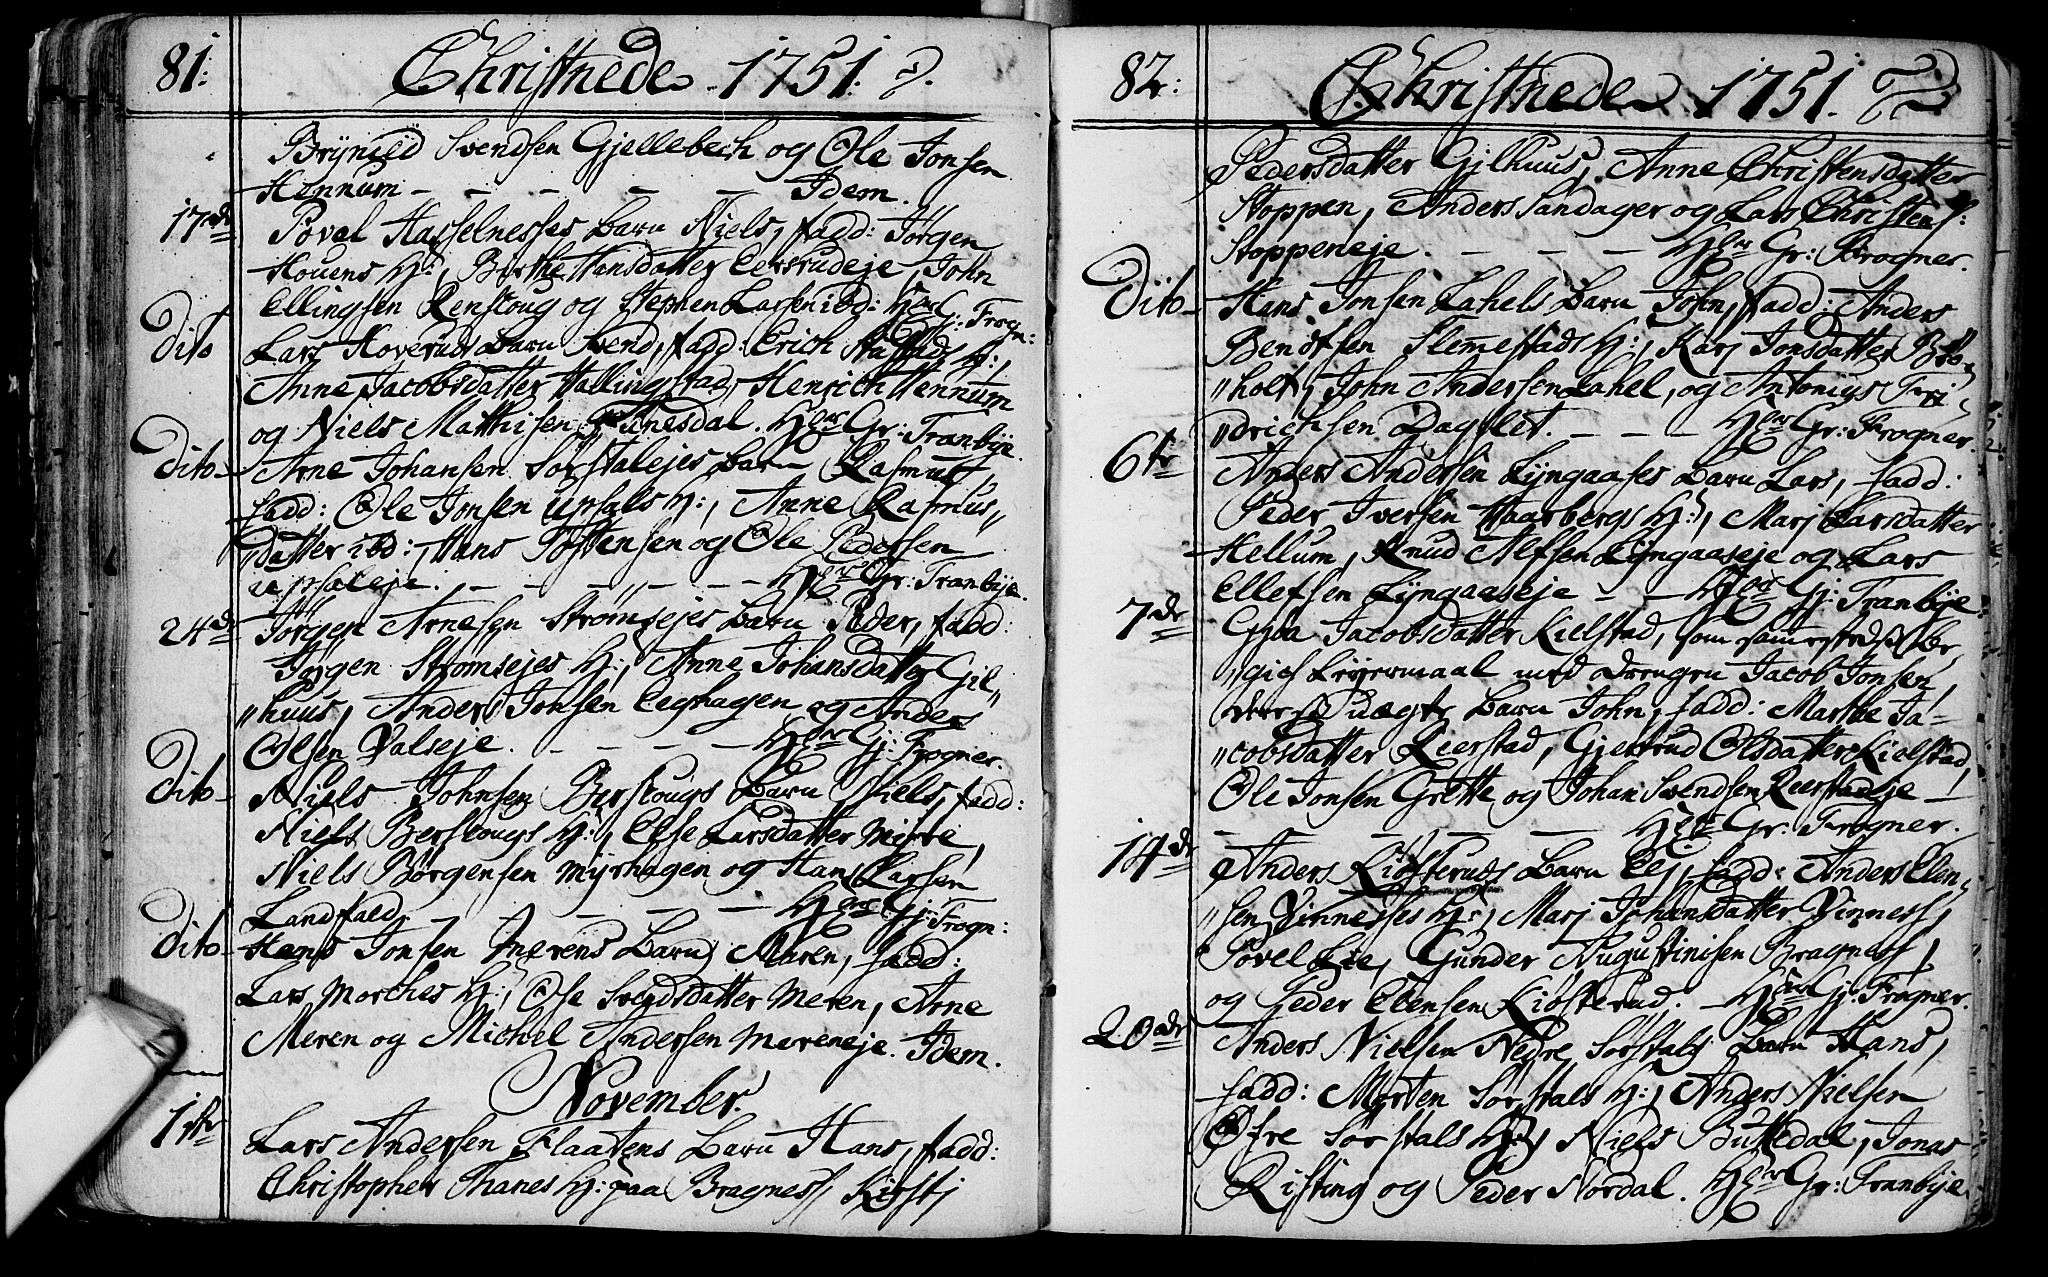 81:
Christnede 1751.
Brynild Svendsen Gjellebech og Ole Jonsen
Hennum - - - - - Idem.
17de Povel Hasselnesses Barn Niels, fadd: Jørgen
Houens H:, Birthe Hansdatter Eersrudeje, John
Ellingsen Renskoug og Stephen Larsen ibd: Hr Gr: Frogn:
Dito Lars Hoveruds Barn Svend, fadd: Erich Stafstads H:,
Anne Jacobsdatter Hallingstad, Henrich Hennum
og Niels Matthisen Funesdal. Hr Gr: Tranbye.
Dito Arne Johansen Sørstalejes Barn Rasmus,
fadd: Ole Jonsen Upsals H:, Anne Rasmus„
datter ibd:, Hans Tostensen og Ole Pedersen
Upsaleje. - - - - - Hr Gr: Tranbije.
24de Jørgen Arnesen Strømsejes Barn Peder, fadd:
Jørgen Strømsejes H:, Anne Johansdatter Gil„
„huus, Anders Jonsen Eeghagen og Anders
Olsen Valseje. - - - - Hr Gj: Frogner.
Dito Niels Johnsen Berskougs Barn Niels, fadd:
Niels Berskougs H:, Else Larsdatter Myre,
Niels Børgensen Myrhagen og Hans Larsen
Landfald - - - - Hr Gj: Frogn:
Dito Hans Jonsen Merens Barn Maren, fadd:
Lars Morches H:, Ose Svendsdatter Meren, Arne
Meren og Michel Andersen Mereneje. Idem.
November.
1ste Lars Andersen Flaatens Barn Hans, fadd:
Christopher Thanes H: paa Bragness, Kirstj
82:
Christnede 1751.
Pedersdatter Gilhuus, Anne Christensdatter
Stoppen, Anders Sandager og Lars Christens:
Stoppeneje. - - - Hr Gr: Frogner.
Dito Hans Jonsen Lahels Barn John, fadd: Anders
Bendtsen Slemestads H:, Karj Jonsdatter Bra„
„holt, John Andersen Lahel, og Antonius Fri„
„drichsen Dagslet. - - - Hr Gr: Frogner.
6te Anders Andersen Lyngaases Barn Lars, fadd:
Peder Iversen Haarbergs H:, Marj Larsdatter
Hellum, Knud Alfsen Lyngaaseje og Lars
Ellefsen Lyngaaseje - - Hr Gj: Tranbije
7de Gyoa Jacobsdatter Kielstad, som sammestedss be„
„gick Leyermaal med Drengen Jacob Jonsen,
deres uægte Barn John, fadd: Marthe Ja-
„cobsdatter Kierstad, Gjertrud Olsdatter Kielstad,
Ole Jonsen Grette og Johan Svendsen Reerstadeje -
- - - - - Hr Gr: Frogner.
14de Anders Kiøsteruds Barn Elj, fadd: Anders Elen„
„sen Vinnesses H:, Marj Johansdatter Vinness,
Povel Lie, Gunder Augustinisen Bragness,
og Peder Elensen Kiøsterud. - Hr Gj: Frogner.
20de Anders Nielsen Nedre Sørstals Barn Hans,
fadd: Morten Sørstals H:, Anders Nielsen
Øfre Sørstals H:, Niels Buttedal, Jonas
Risting og Peder Nordal. Hr Gr: Tranbije